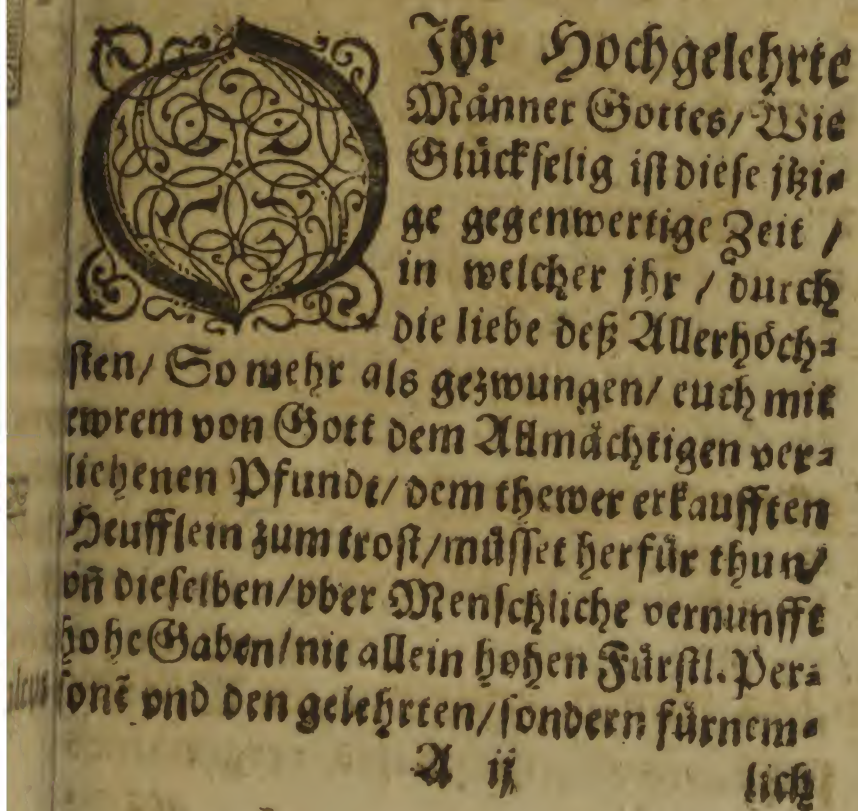 O Ihr Hochgelehrte
Männer Gottes/ Wie
Glückselig ist diese jtzi-
ge gegenwertige Zeit /
in welcher jhr / durch
die liebe deß Allerhöch-
sten/ So mehr als gezwungen/ euch mit
ewrem von Gott dem Allmächtigen ver-
lichenen Pfundt/ dem thewer erkaufften
Heufflein zum trost/ müsset herfür thun/
vn̄ dieselben/ vber Menschliche vernunfft
hohe Gaben/ nit allein hohen Fürstl. Per-
sonē vnd den gelehrten/ sondern fürnem-
A ij lich